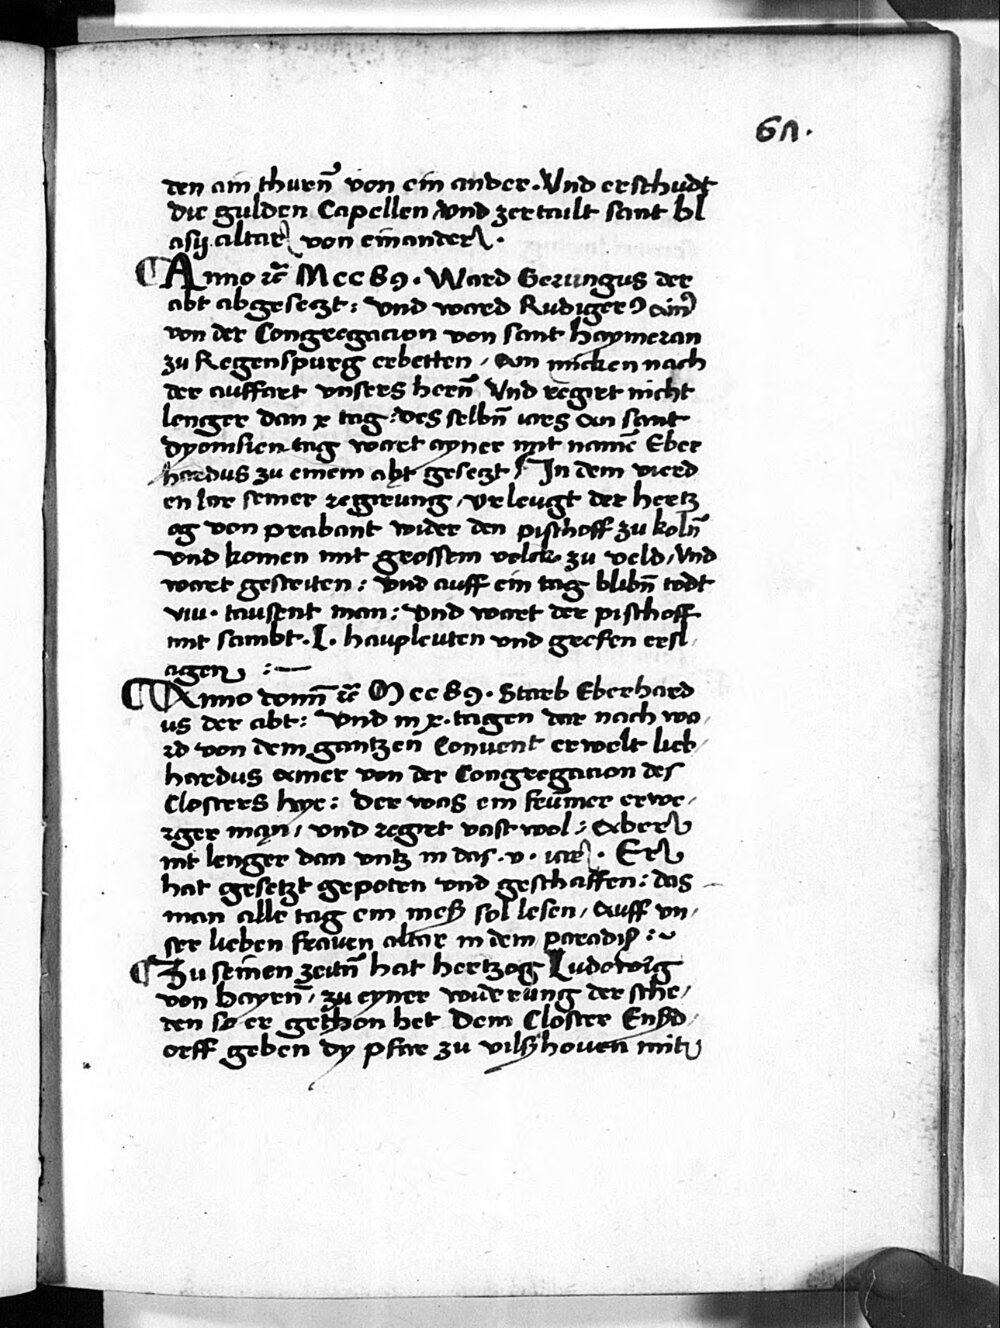 67.
den ain thurn̄ von ein ander. Vnd erschudt
die gulden Capellen vnd zertailt sant bl
asij altar von einander.
Anno ꝛc̄ Mcc89. Ward Gerungus der
abt abgesetzt: vnd ward Rudiger9 ain̄
von der Congregacion von sant haymeran
zu Regenspurg erbetten / An micken nach
der auffart vnsers hern̄ Vnd regirt nicht
lenger dan x tag: des selbn̄ iars an sant
dyonisien tag wart ayner mit namē Eber
hardus zu einem abt gesetzt / In dem vierd
en Iar seiner regirung / vrleugt der hertz
og von prabant wider den pischoff zu koln̄
vnd komen mit grossem volck zu veld / Vnd
wart gestriten: vnd auff ein tag blibn̄ todt
viii. tausent man: Vnd wart der pischoff
mit sambt .L. haupleuten vnd grefen ersl
agen :—
Anno domn̄ ꝛc̄ Mcc89. Starb Eberhard
us der abt: Vnd in x. tagen dar nach wo/
rd von dem gantzen Convent erwelt lieb/
hardus ainer von der Congregacion des
Closters hye: Der was ein frumer erwe/
rger man / vnd regirt vast wol: Aber
nit lenger dan vntz in das .v. iar. Er
hat gesetzt gepoten vnd geschaffen: das
man alle tag ein meß sol lesen / Auff vn/
ser lieben frauen altar in dem paradiß :~
Zu seinen zeitn̄ hat hertzog Ludowig
von bayrn̄ / zu eyner widerung der sche/
den so er gethon het Dem Closter Enßd/
orff geben dy pfar zu vilßhouen mit